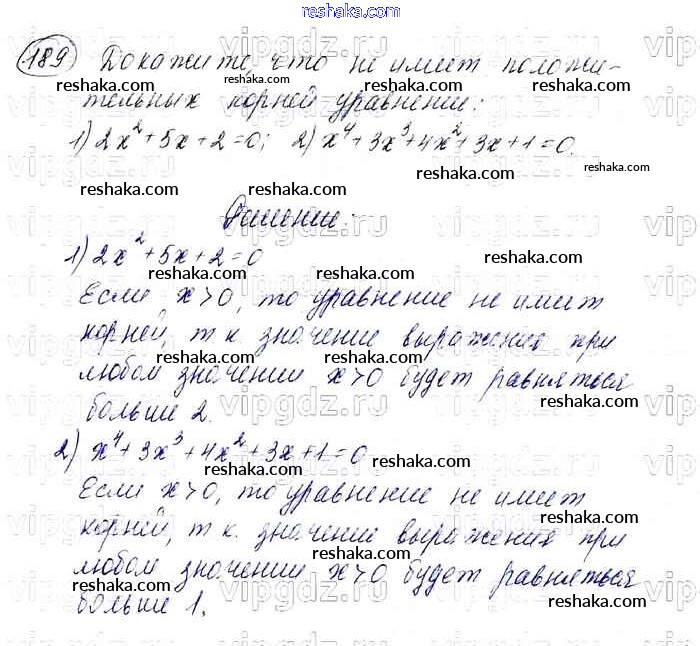 189 Докажите, что не имеет положи-
тельных корней уравнение:
1) 2x² + 5x + 2 = 0; 2) x⁴ + 3x³ + 4x² + 3x + 1 = 0.
Решение:
1) 2x² + 5x + 2 = 0
Если x > 0, то уравнение не имеет
корней, т к. значение выражения при
любом значении x > 0 будет равняться
больше 2.
2) x⁴ + 3x³ + 4x² + 3x + 1 = 0
Если x > 0, то уравнение не имеет
корней, т к. значение выражения при
любом значении x > 0 будет равняться
больше 1.